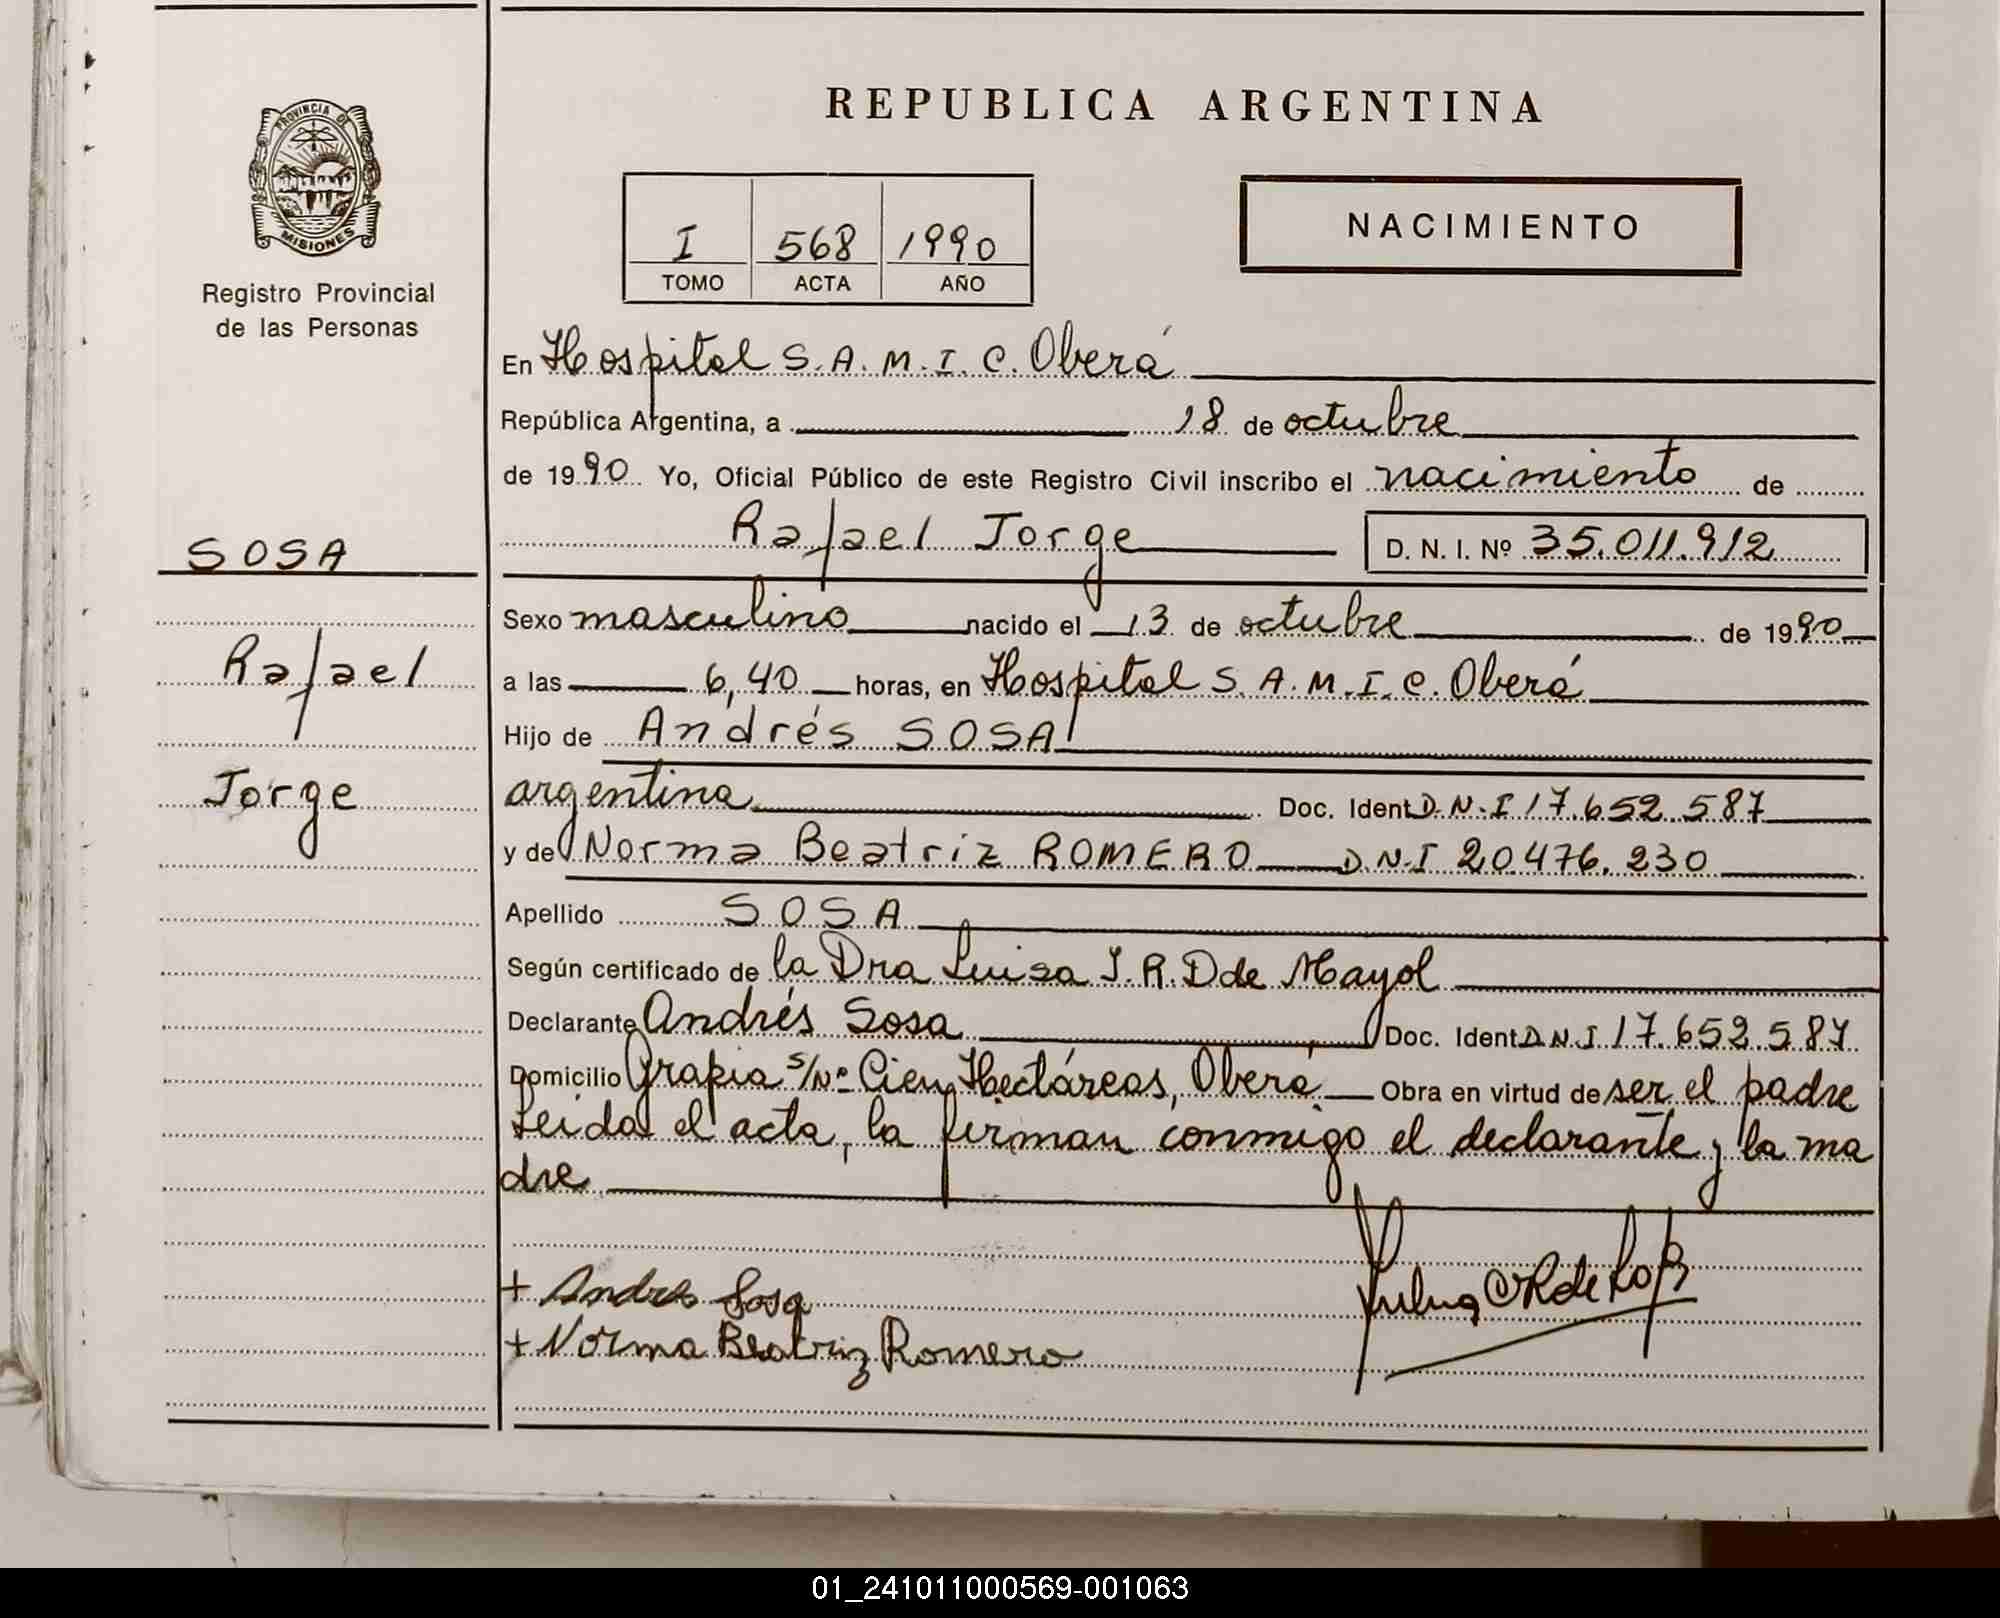 REPUBLICA ARGENTINA
PROVINCIA DE
MISIONES
Registro Provincial
de las Personas
I 568 1990
TOMO ACTA AÑO
NACIMIENTO
En Hospital S.A.M.I.C. Oberá
República Argentina, a 18 de octubre
de 1990 Yo, Oficial Público de este Registro Civil inscribo el nacimiento de
Rafael Jorge D. N. I. Nº 35.011.912
SOSA
Rafael
Jorge
Sexo masculino nacido el 13 de octubre de 1990
a las 6,40 horas, en Hospital S.A.M.I.C. Oberá
Hijo de Andrés SOSA
argentina Doc. Ident D.N.I 17.652.587
y de Norma Beatriz ROMERO D.N.I 20.476.230
Apellido SOSA
Según certificado de la Dra Luisa J.R.D de Mayol
Declarante Andrés Sosa Doc. Ident D.N.I 17.652.587
Domicilio Grapia s/Nº Cien Hectáreas, Oberá Obra en virtud de ser el padre
Leida el acta, la firman conmigo el declarante y la ma
dre
+ Andres Sosa
+ Norma Beatriz Romero
01_241011000569-001063